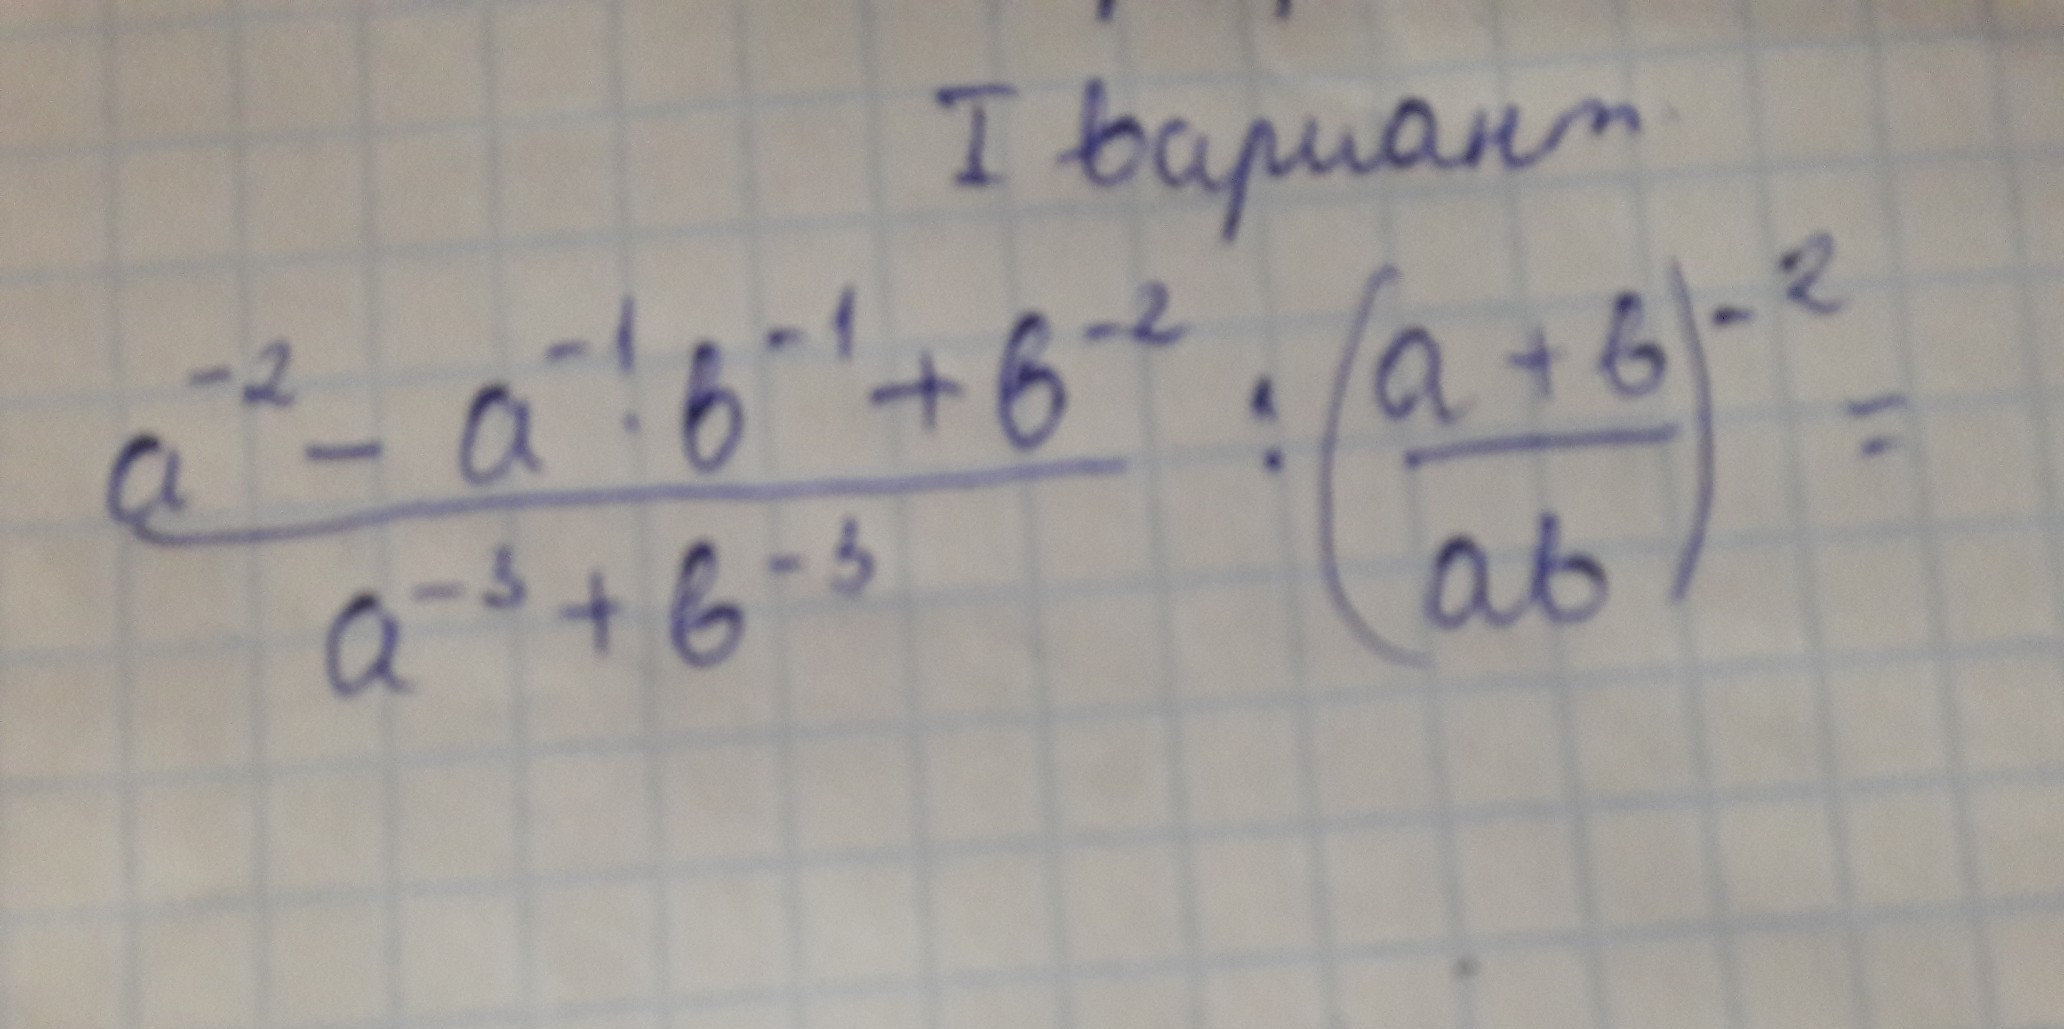 I вариант
a⁻² - a⁻¹ · b⁻¹ + b⁻² / a⁻³ + b⁻³ : (a + b / ab)⁻² =